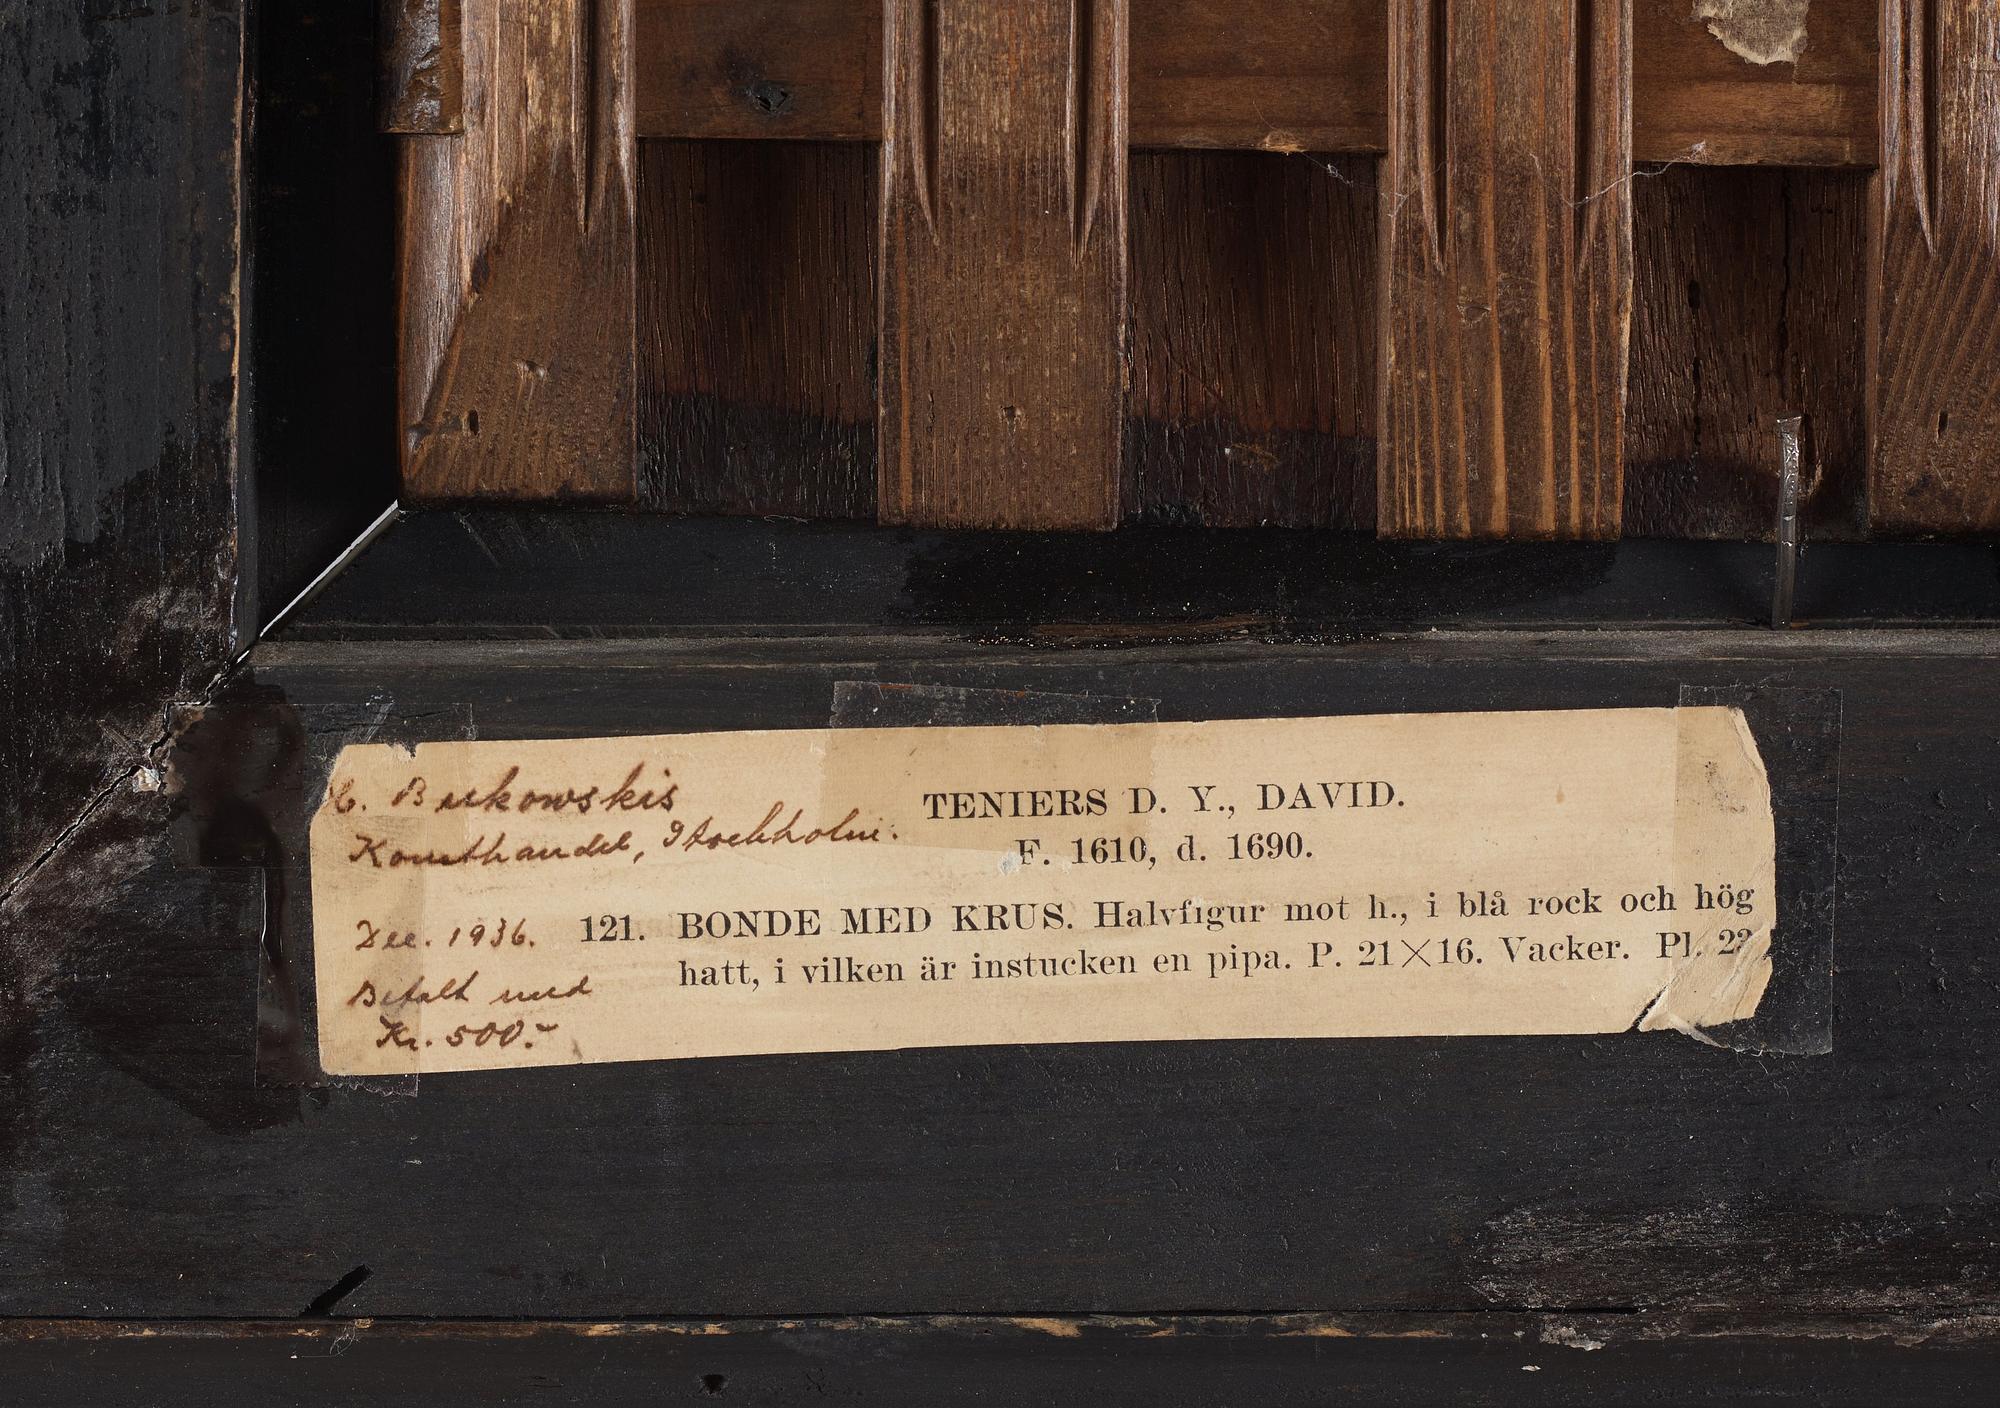 H. Bukowskis
Konsthandel, Stockholm.
TENIERS D. Y., DAVID.
F. 1610, d. 1690.
Dec. 1936.
121. BONDE MED KRUS. Halvfigur mot h., i blå rock och hög
hatt, i vilken är instucken en pipa. P. 21×16. Vacker. Pl.
Betalt med
Kr. 500:-